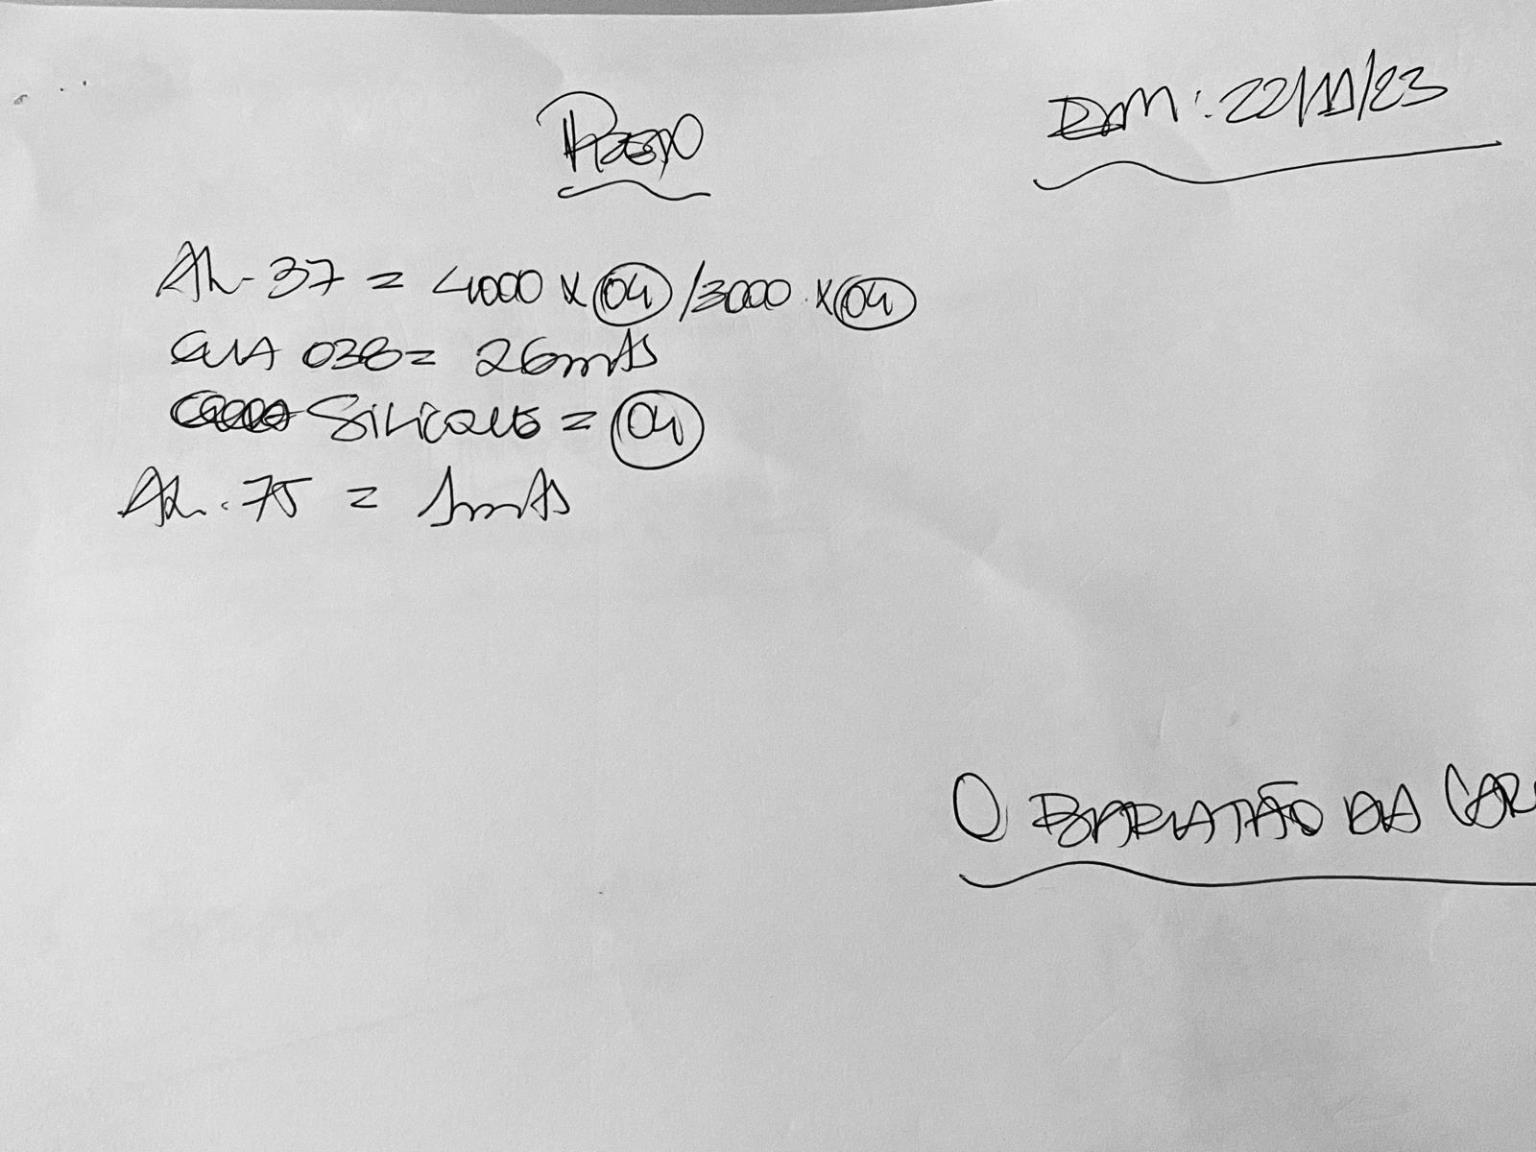 Preto
EM: 22/11/23
AL-37 = 4000 x 04 /3000 x 04
GUA 038 = 26mts
Silicone = 04
AL-75 = 1mts
O BARATÃO DA